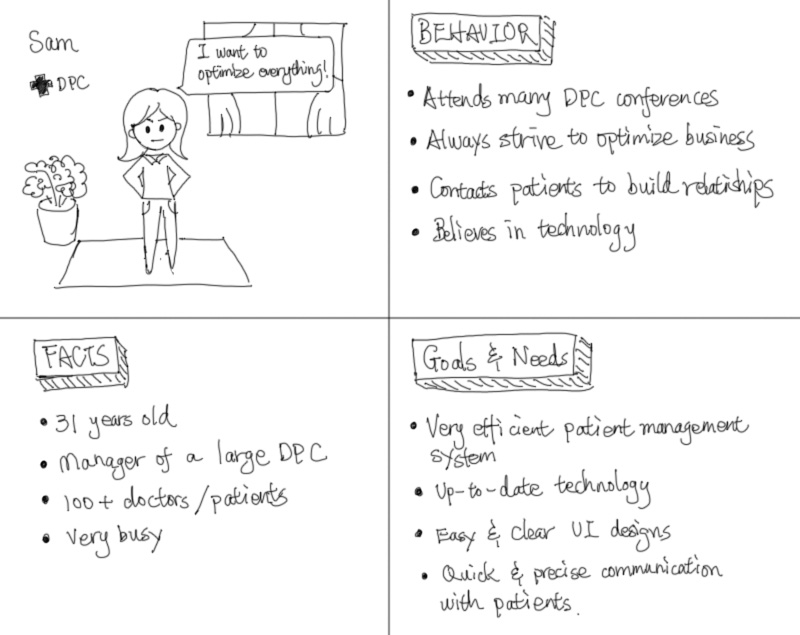 Sam
DPC
I want to
optimize everything!
BEHAVIOR
• Attends many DPC conferences
• Always strive to optimize business
• Contacts patients to build relatiships
• Believes in technology
FACTS
• 31 years old
• Manager of a large DPC
• 100+ doctors/patients
• Very busy
Goals & Needs
• Very efficient patient management
system
• Up-to-date technology
• Easy & clear UI designs
• Quick & precise communication
with patients.